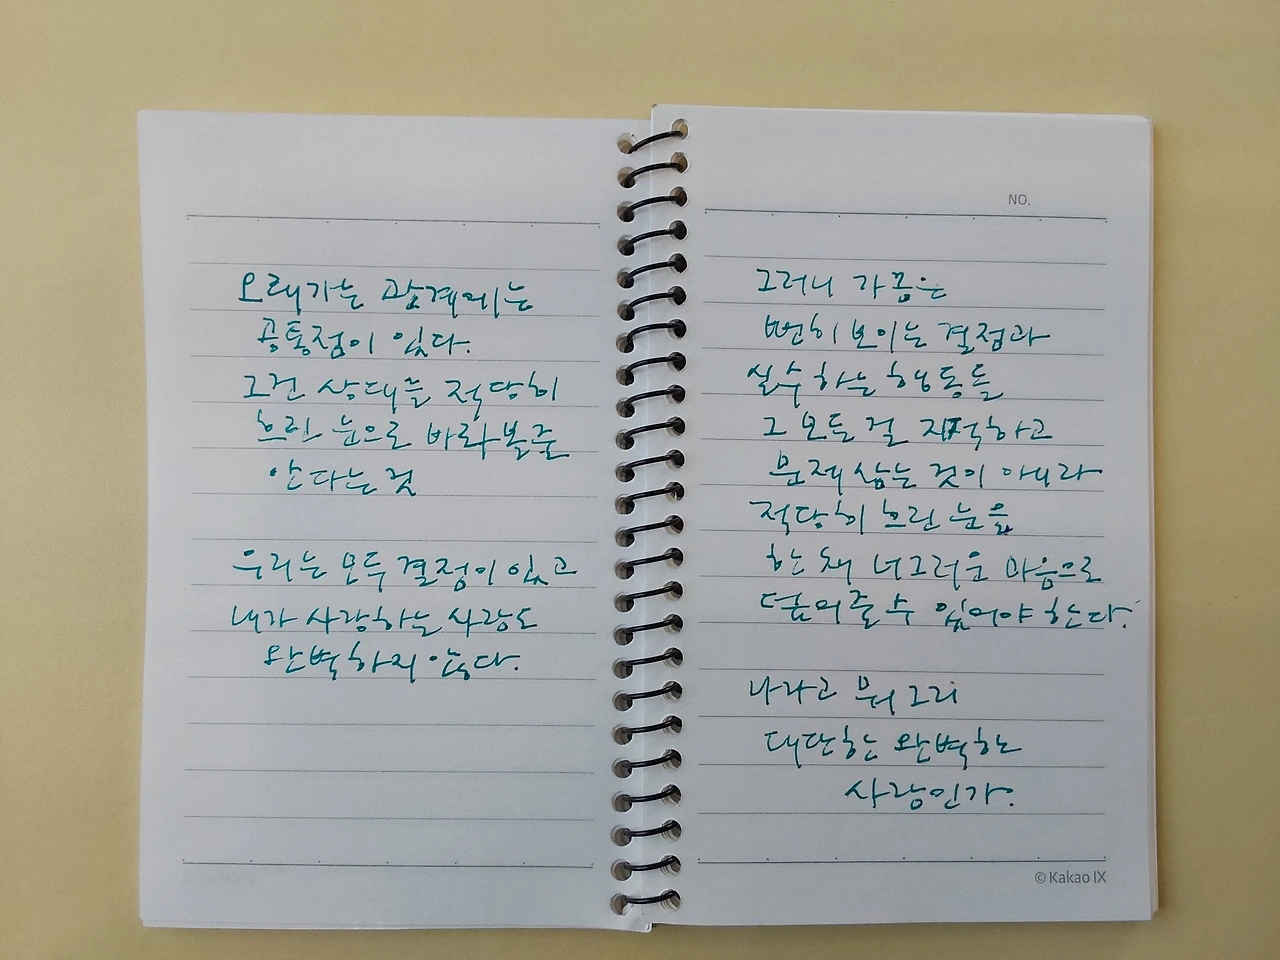 오래가는 관계에는
공통점이 있다.
그건 상대를 적당히
흐린 눈으로 바라볼줄
안다는 것
우리는 모두 결점이 있고
내가 사랑하는 사람도
완벽하지 않다.
NO.
그러니 가끔은
뻔히 보이는 결점과
실수하는 행동들
그 모든 걸 지적하고
문제 삼는 것이 아니라
적당히 흐린 눈을
한 채 너그러운 마음으로
덮어줄 수 있어야 한다.
나라고 뭐 그리
대단한 완벽한
사람인가.
© Kakao IX